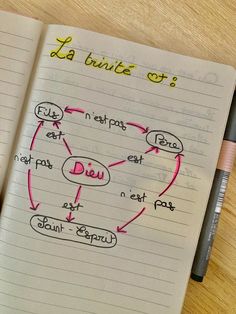 La trinité :
Fils
n'est pas
Père
est
est
n'est pas
Dieu
n'est
pas
n'est
pas
est
Saint-Esprit